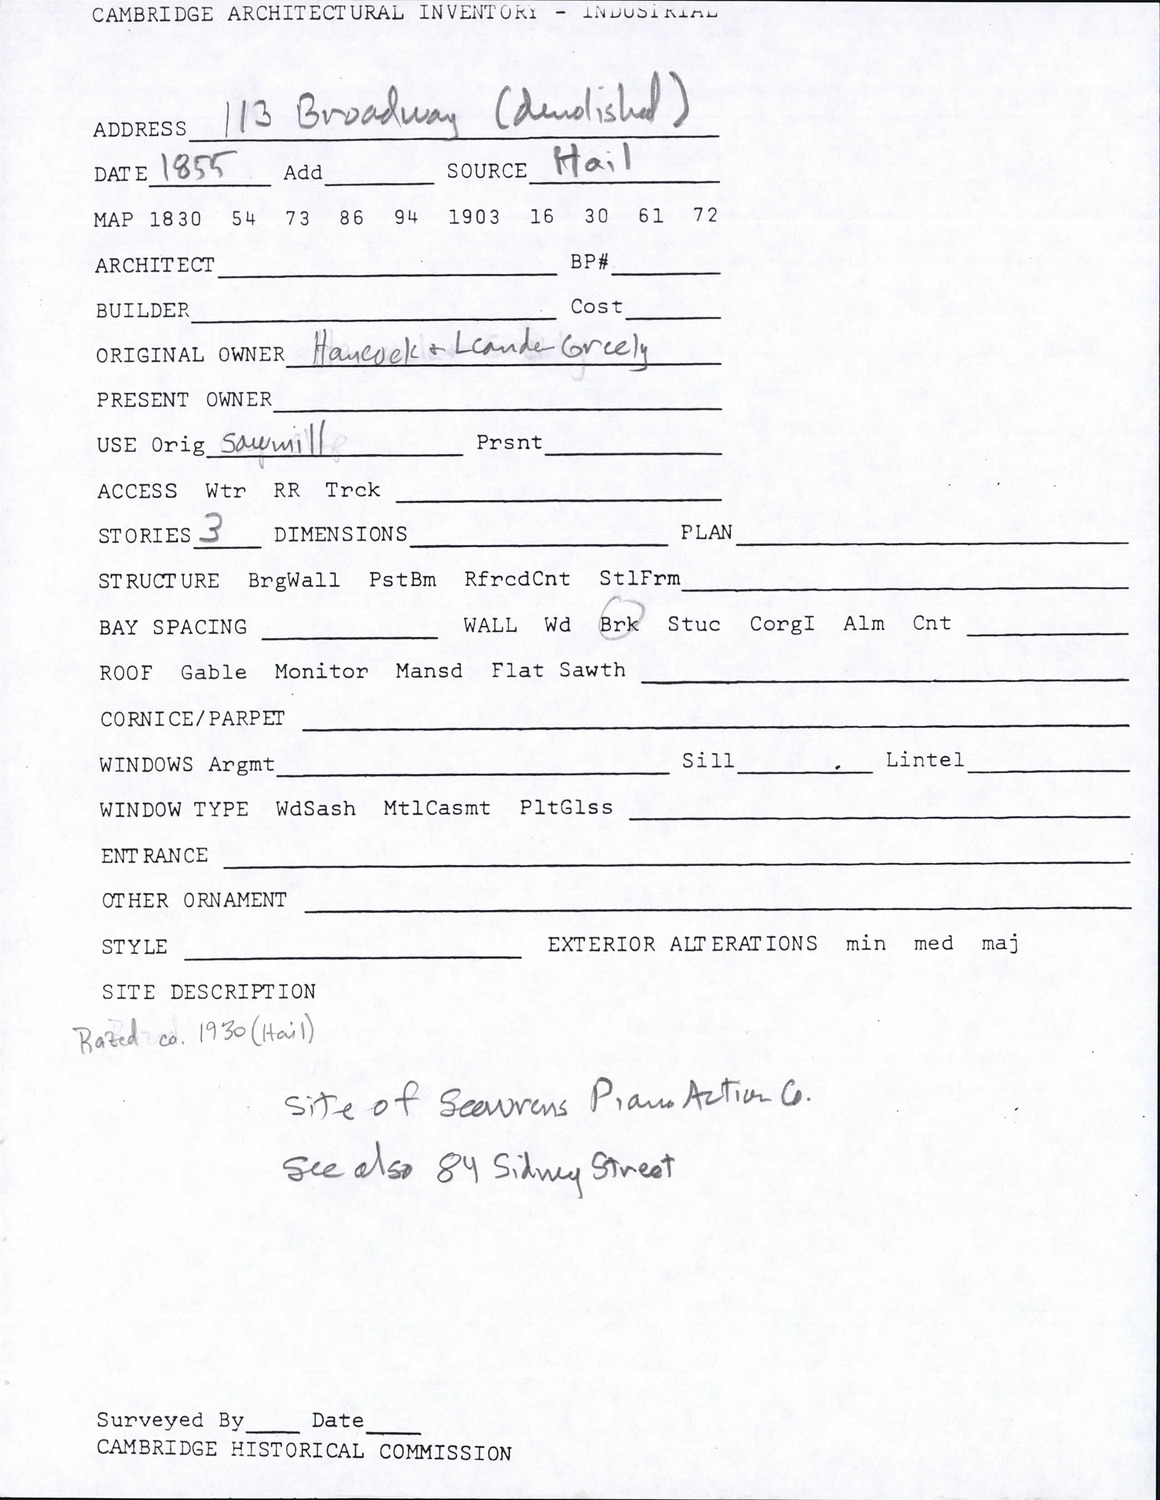 CAMBRIDGE ARCHITECTURAL INVENTORY - INDUSTRIAL
ADDRESS 113 Broadway (demolished)
DATE 1855 Add SOURCE Hail
MAP 1830 54 73 86 94 1903 16 30 61 72
ARCHITECT BP#
BUILDER Cost
ORIGINAL OWNER Hancock + Leander Greely
PRESENT OWNER
USE Orig Sawmill Prsnt
ACCESS Wtr RR Trck
STORIES 3 DIMENSIONS PLAN
STRUCTURE BrgWall PstBm RfrcdCnt StlFrm
BAY SPACING WALL Wd Brk Stuc CorgI Alm Cnt
ROOF Gable Monitor Mansd Flat Sawth
CORNICE/PARPET
WINDOWS Argmt Sill Lintel
WINDOW TYPE WdSash MtlCasmt PltGlss
ENTRANCE
OTHER ORNAMENT
STYLE EXTERIOR ALTERATIONS min med maj
SITE DESCRIPTION
Razed ca. 1930 (Hail)
Site of Seaverns Piano Action Co.
See also 84 Sidney Street
Surveyed By Date
CAMBRIDGE HISTORICAL COMMISSION